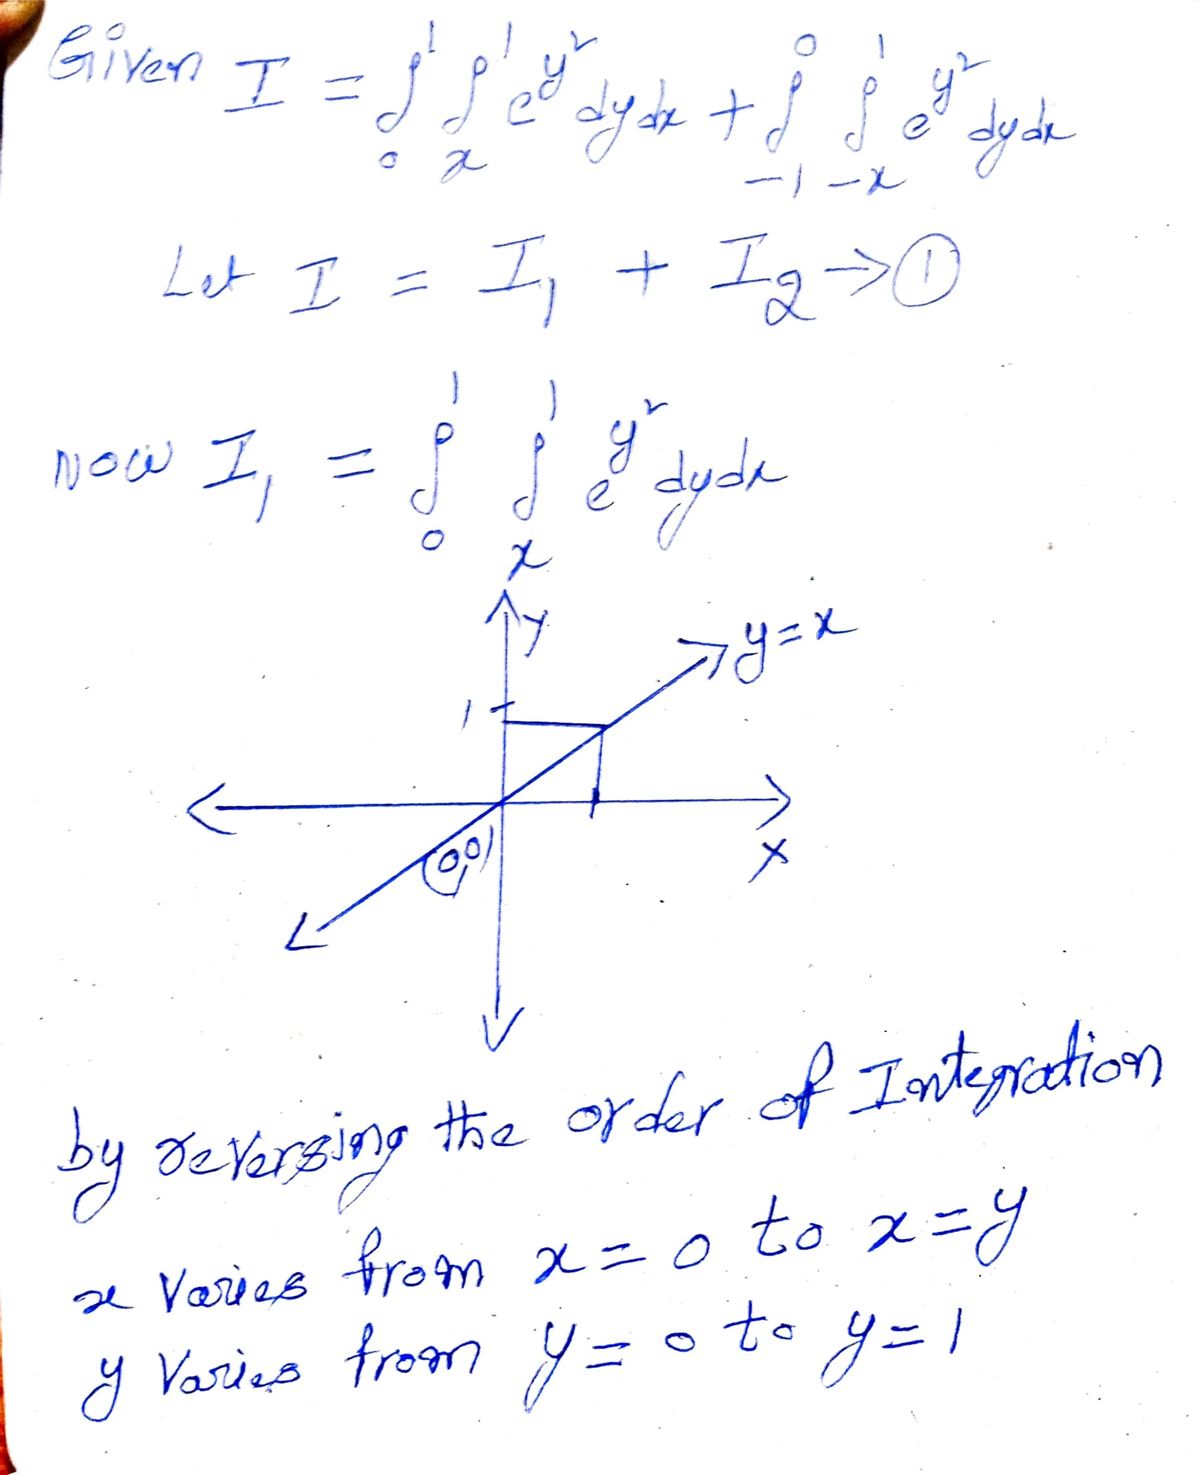 Given I = ∫₀¹ ∫ₓ¹ e^{y²} dy dx + ∫₋₁⁰ ∫₋ₓ¹ e^{y²} dy dx
Let I = I₁ + I₂ → ①
Now I₁ = ∫₀¹ ∫ₓ¹ e^{y²} dy dx
Y
y=x
1
(0,0)
X
by reversing the order of Integration
x varies from x=0 to x=y
y varies from y=0 to y=1